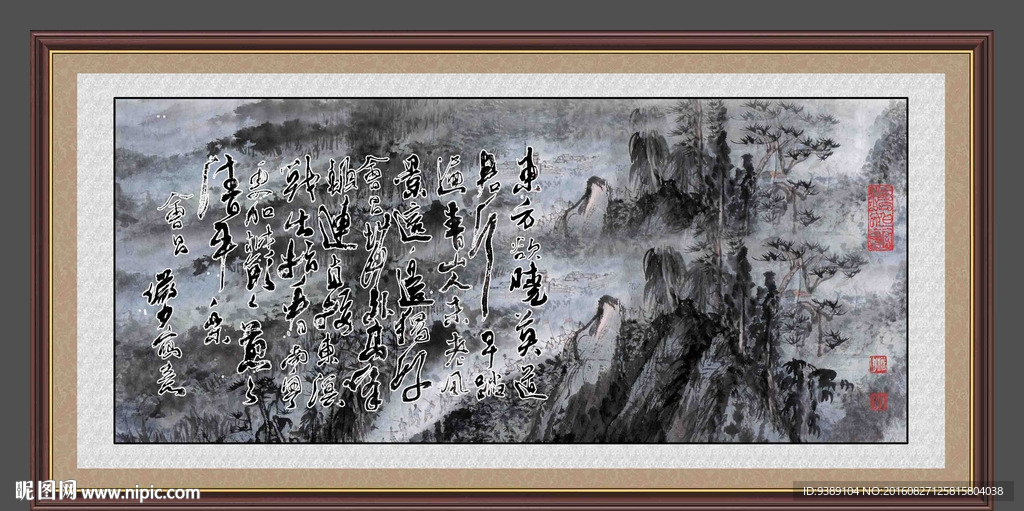 東方欲曉莫道
君行早踏
遍青山人未老風
景這邊獨好
會昌城外高峰
顛連直接東溟
戰士指看南粤
更加鬱々葱々
清平樂
會昌
昵图网 www.nipic.com
ID:9389104 NO:20160827125815804038